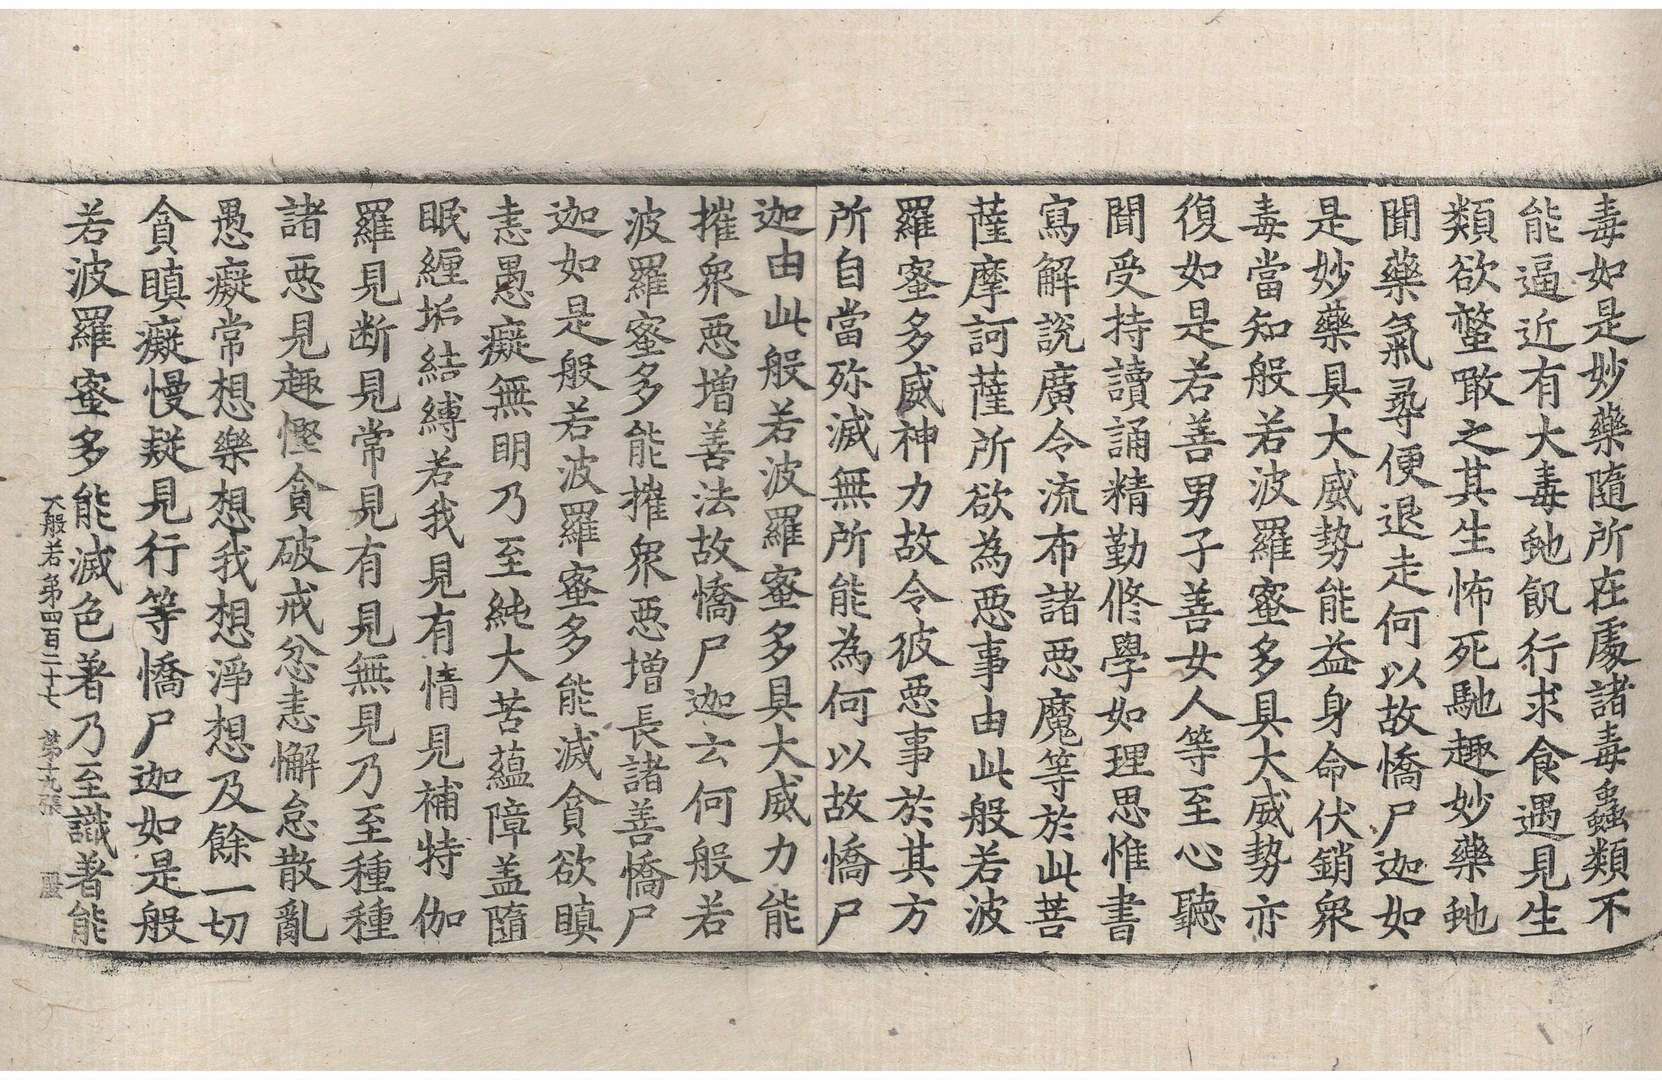 毒如是妙藥隨所在處諸毒蟲類不
能逼近有大毒虵飢行求食遇見生
類欲螫噉之其生怖死馳趣妙藥虵
聞藥氣尋便退走何以故憍尸迦如
是妙藥具大威勢能益身命伏銷衆
毒當知般若波羅蜜多具大威勢亦
復如是若善男子善女人等至心聽
聞受持讀誦精勤修學如理思惟書
寫解說廣令流布諸惡魔等於此菩
薩摩訶薩所欲為惡事由此般若波
羅蜜多威神力故令彼惡事於其方
所自當殄滅無所能為何以故憍尸
迦由此般若波羅蜜多具大威力能
摧衆惡增善法故憍尸迦云何般若
波羅蜜多能摧衆惡增長諸善憍尸
迦如是般若波羅蜜多能滅貪欲瞋
恚愚癡無明乃至純大苦蘊障盖隨
眠纏垢結縛若我見有情見補特伽
羅見断見常見有見無見乃至種種
諸惡見趣慳貪破戒忿恚懈怠散亂
愚癡常想樂想我想淨想及餘一切
貪瞋癡慢疑見行等憍尸迦如是般
若波羅蜜多能滅色著乃至識著能
大般若第四百二十七 第十九張